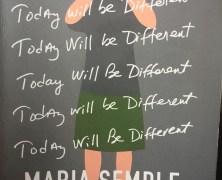 Today Will be Different
Today Will be Different
Today Will Be Different
Today will be Different
Today Will Be Different
MARIA SEMPLE